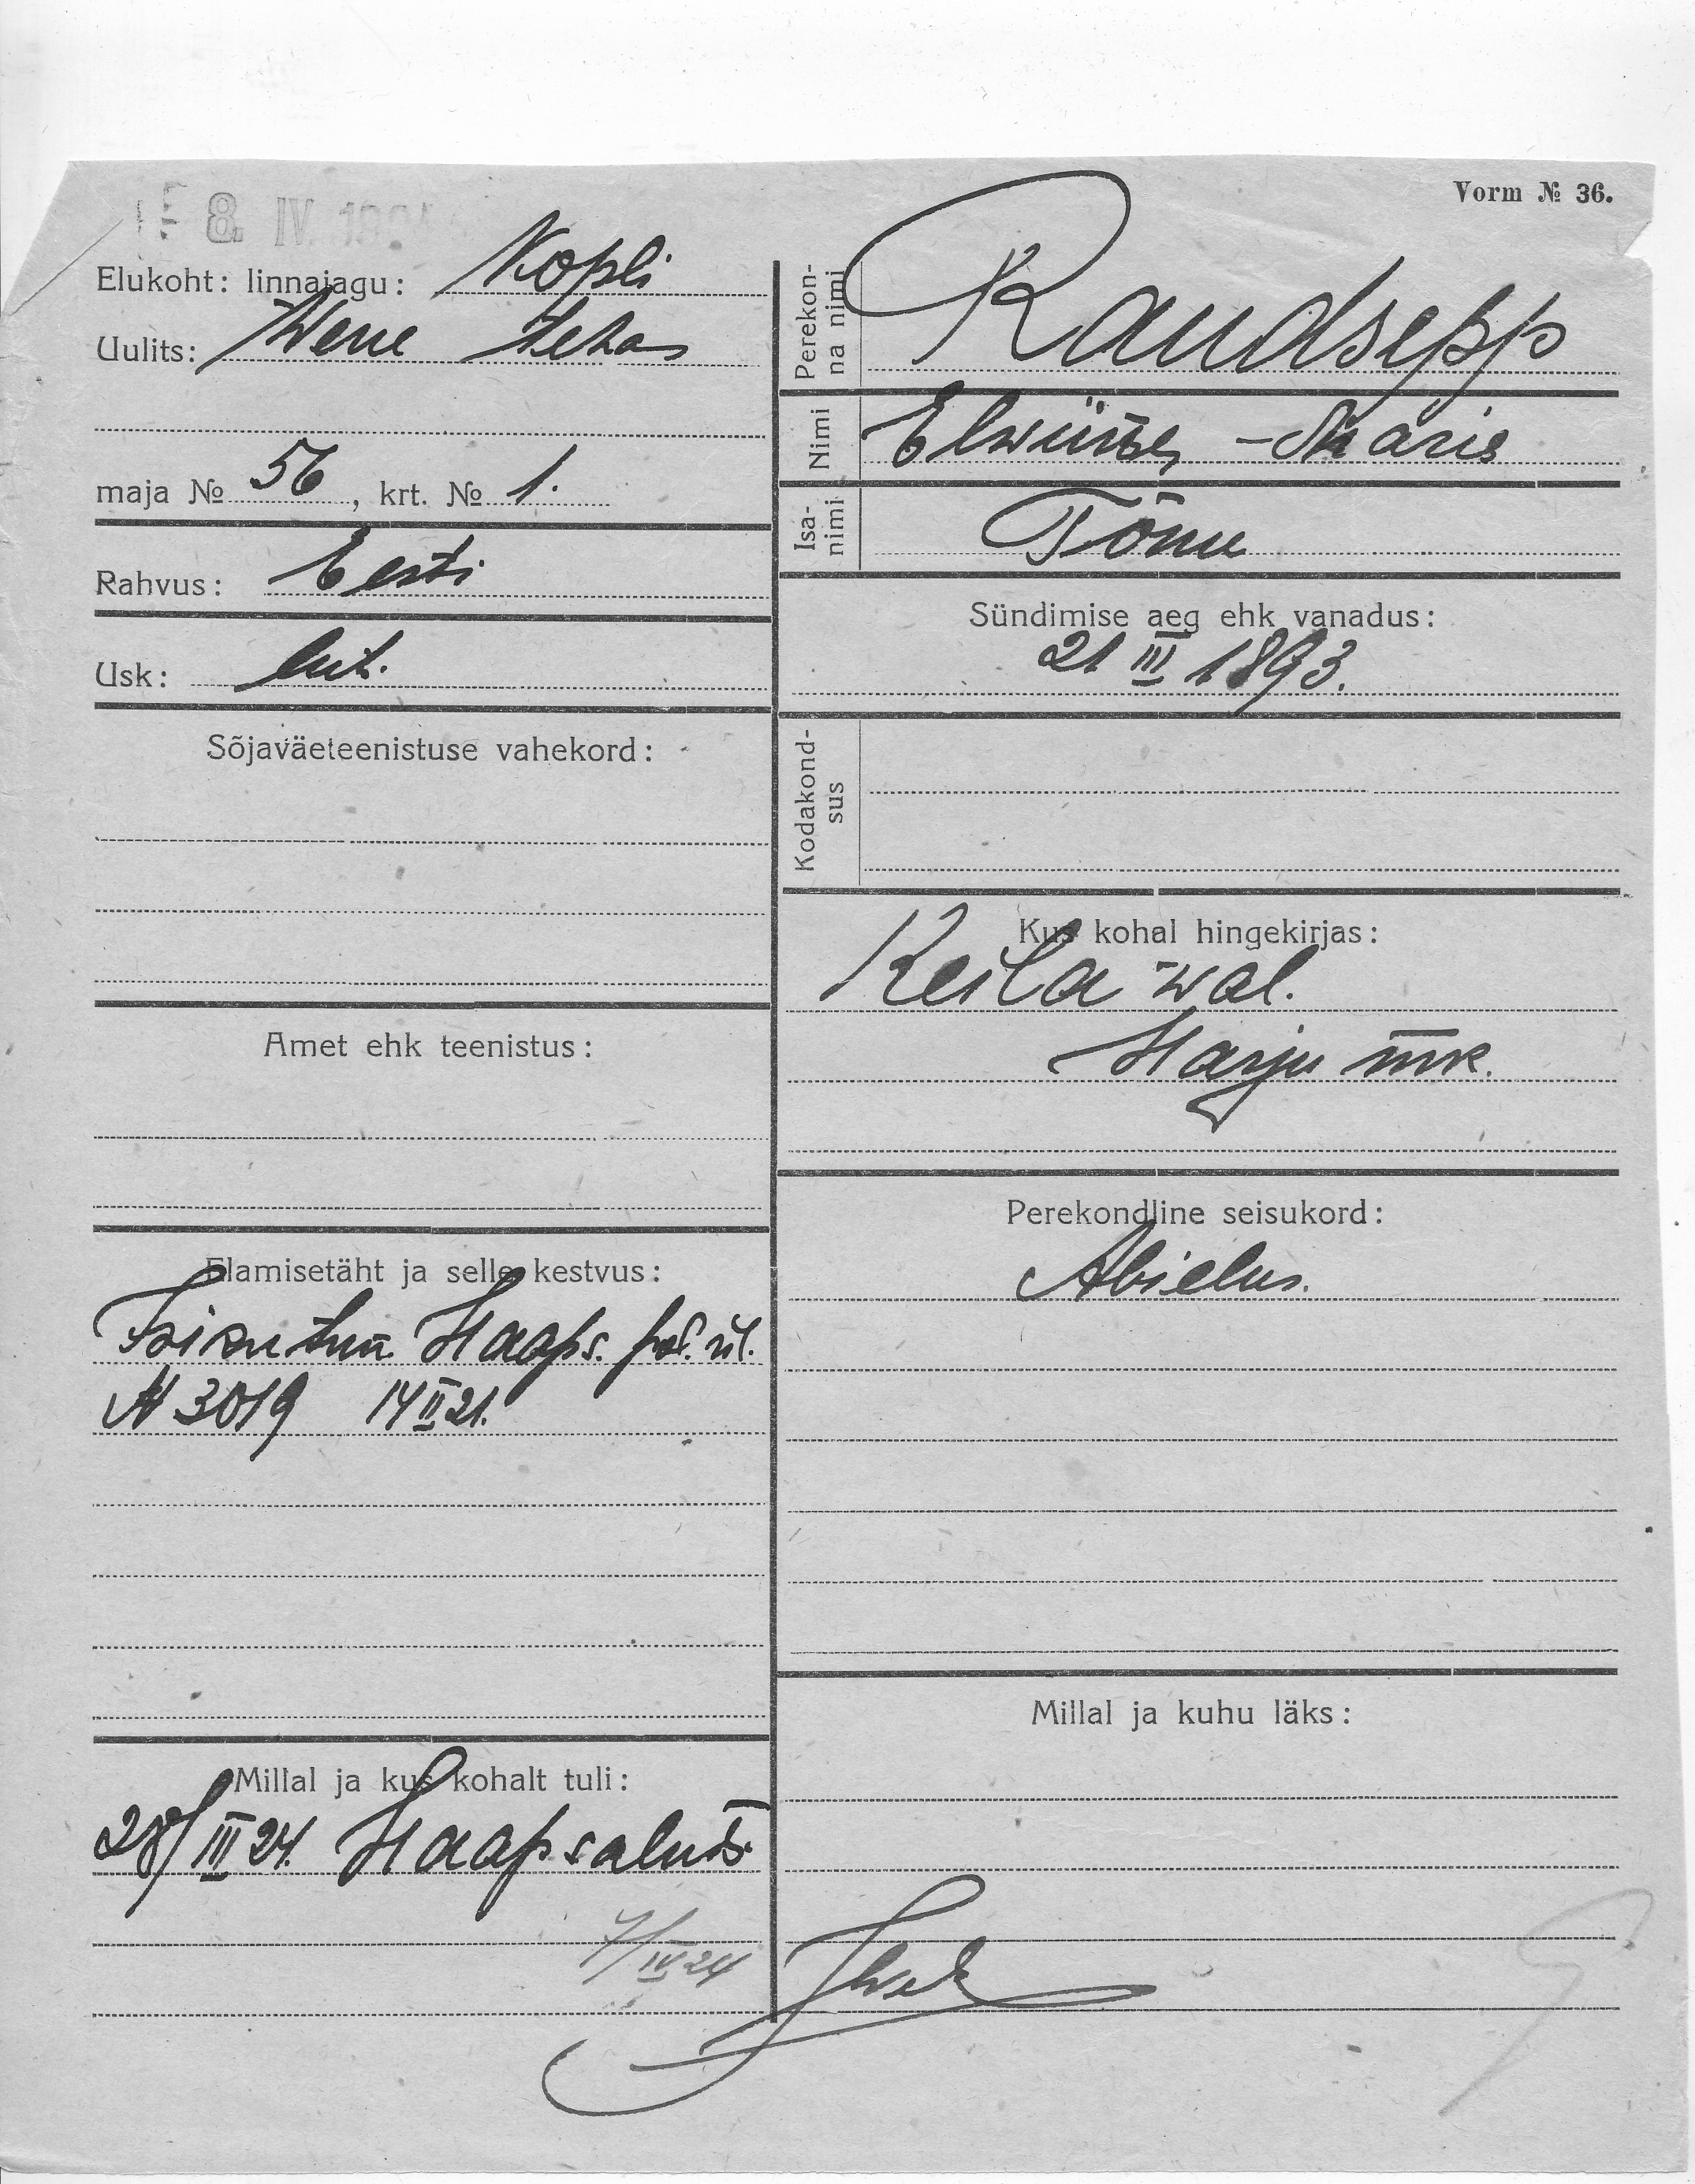 Vorm № 36.
8. IV. 192
Elukoht: linnajagu: Kopli
Uulits: Wene tehas
maja № 56, krt. № 1.
Rahvus: Eesti
Usk: lut.
Sõjaväeteenistuse vahekord:
Amet ehk teenistus:
Elamisetäht ja selle kestvus:
Isikutun. Haaps. pol. ül.
N 3019 14 II 21.
Millal ja kus kohalt tuli:
28/III 24. Haapsalust
7/IV 24
Perekon-
na nimi
Raudsepp
Nimi
-Marie
Isa-
nimi
Tõnu
Sündimise aeg ehk vanadus:
21 III 1893.
Kodakond-
sus
Kus kohal hingekirjas:
Keila wal.
Harju mk.
Perekondline seisukord:
Abielus.
Millal ja kuhu läks: